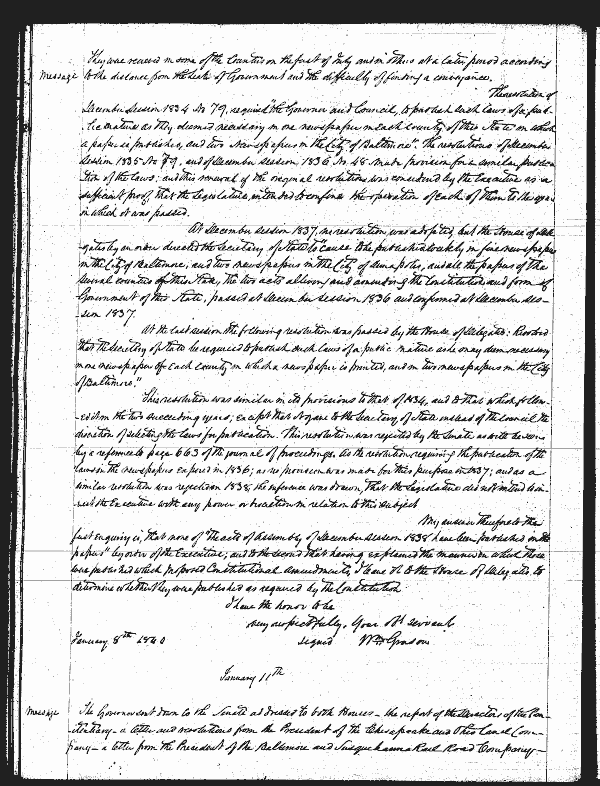 they were received in some of the Counties on the first of July and in others at a later period according
Message to the distance from the seat of Government and the difficulty of finding a conveyance.
The resolution of
December Session 1834 No 79, required "the Governor and Council, to publish such laws of a pub-
lic nature as they deemed necessary in one newspaper in each county of this State in which
a paper is published, and two Newspapers in the City of Baltimore". The resolutions of December
session 1835 No 79, and of December session, 1836 No. 48 made provision for a similar publica-
tion of the laws; and this renewal of the original resolution was considered by the Executive as a
sufficient proof, that the Legislature, intended to confine the operation of each of them to the year
in which it was passed.
At December session 1837, no resolution, was adopted, but the House of Dele-
gates by an order directed the Secretary of State to cause to be published weekly, in five newspapers
in the City of Baltimore, and two newspapers in the City of Annapolis, and all the papers of the
several counties of this State, the two acts altering and amending the Constitution and form of
Government of this State, passed at December session 1836 and confirmed at December ses-
sion 1837.
At the last session the following resolution was passed by the House of Delegates: Resolved
that the Secretary of State be required to publish such laws of a public nature as he may deem necessary
in one newspaper of each County in which a newspaper is printed, and in two newspapers in the City
of Baltimore."
This resolution was similar in its provisions to that of 1834, and to that which follow-
ed in the two succeeding years; except that it gave to the Secretary of State instead of the council the
discretion of selecting the laws for publication. This resolution was rejected by the Senate as will be seen
by a reference to page 663 of the journal of proceedings. As the resolution requiring the publication of the
laws in the newspapers expired in 1836; as no provision was made for this purpose in 1837; and as a
similar resolution was rejected in 1838, the inference was drawn, that the Legislature did not intend to in-
vest the Executive with any power or discretion in relation to this subject
My answer therefore to the
first enquiry is, that none of "the acts of assembly of December session 1838 have been published in the
papers" by order of the Executive; and to the second that having explained the manner in which those
were published which proposed Constitutional amendments, I leave it to the House of Delegates to
determine whether they were published as required by the Constitution
I have the honor to be
very respectfully, Your Obt servant.
January 8th 1840 signed Wm Grason
January 11th
Message The Governor sent down to the Senate addressed to both Houses – the report of the directors of the Pen-
itentiary – a letter and resolutions from the President of the Chesapeake and Ohio Canal Com-
pany – a letter from the President of the Baltimore and Susquehanna Rail Road Company –